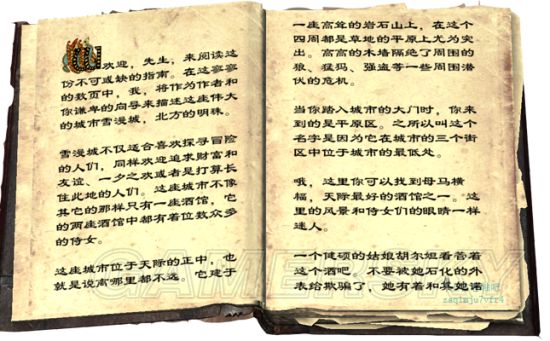 欢迎，先生，来阅读这
份不可或缺的指南。在这寥寥
的数页中，我，将作为作者和
你谦卑的向导来描述这座伟大
的城市雪漫城，北方的明珠。
雪漫城不仅适合喜欢探寻冒险
的人们，同样欢迎追求财富和
友谊、一夕之欢或者是打算长
住此地的人们。这座城市不像
其它的那样只有一座酒馆，它
的两座酒馆中都有着位数众多
的侍女。
这座城市位于天际的正中，也
就是说离哪里都不远。它建于
一座高耸的岩石山上，在这个
四周都是草地的平原上尤为突
出。高高的木墙隔绝了周围的
狼、猛犸、强盗等一些周围潜
伏的危机。
当你踏入城市的大门时，你来
到的是平原区。之所以叫这个
名字是因为它在城市的三个街
区中位于城市的最低处。
哦，这里你可以找到母马横
幅，天际最好的酒馆之一。这
里的风景和侍女们的眼睛一样
迷人。
一个健硕的姑娘胡尔坦看管着
这个酒吧。不要被她石化的外
表给欺骗了，她有着和其她诺
GAMERSKY